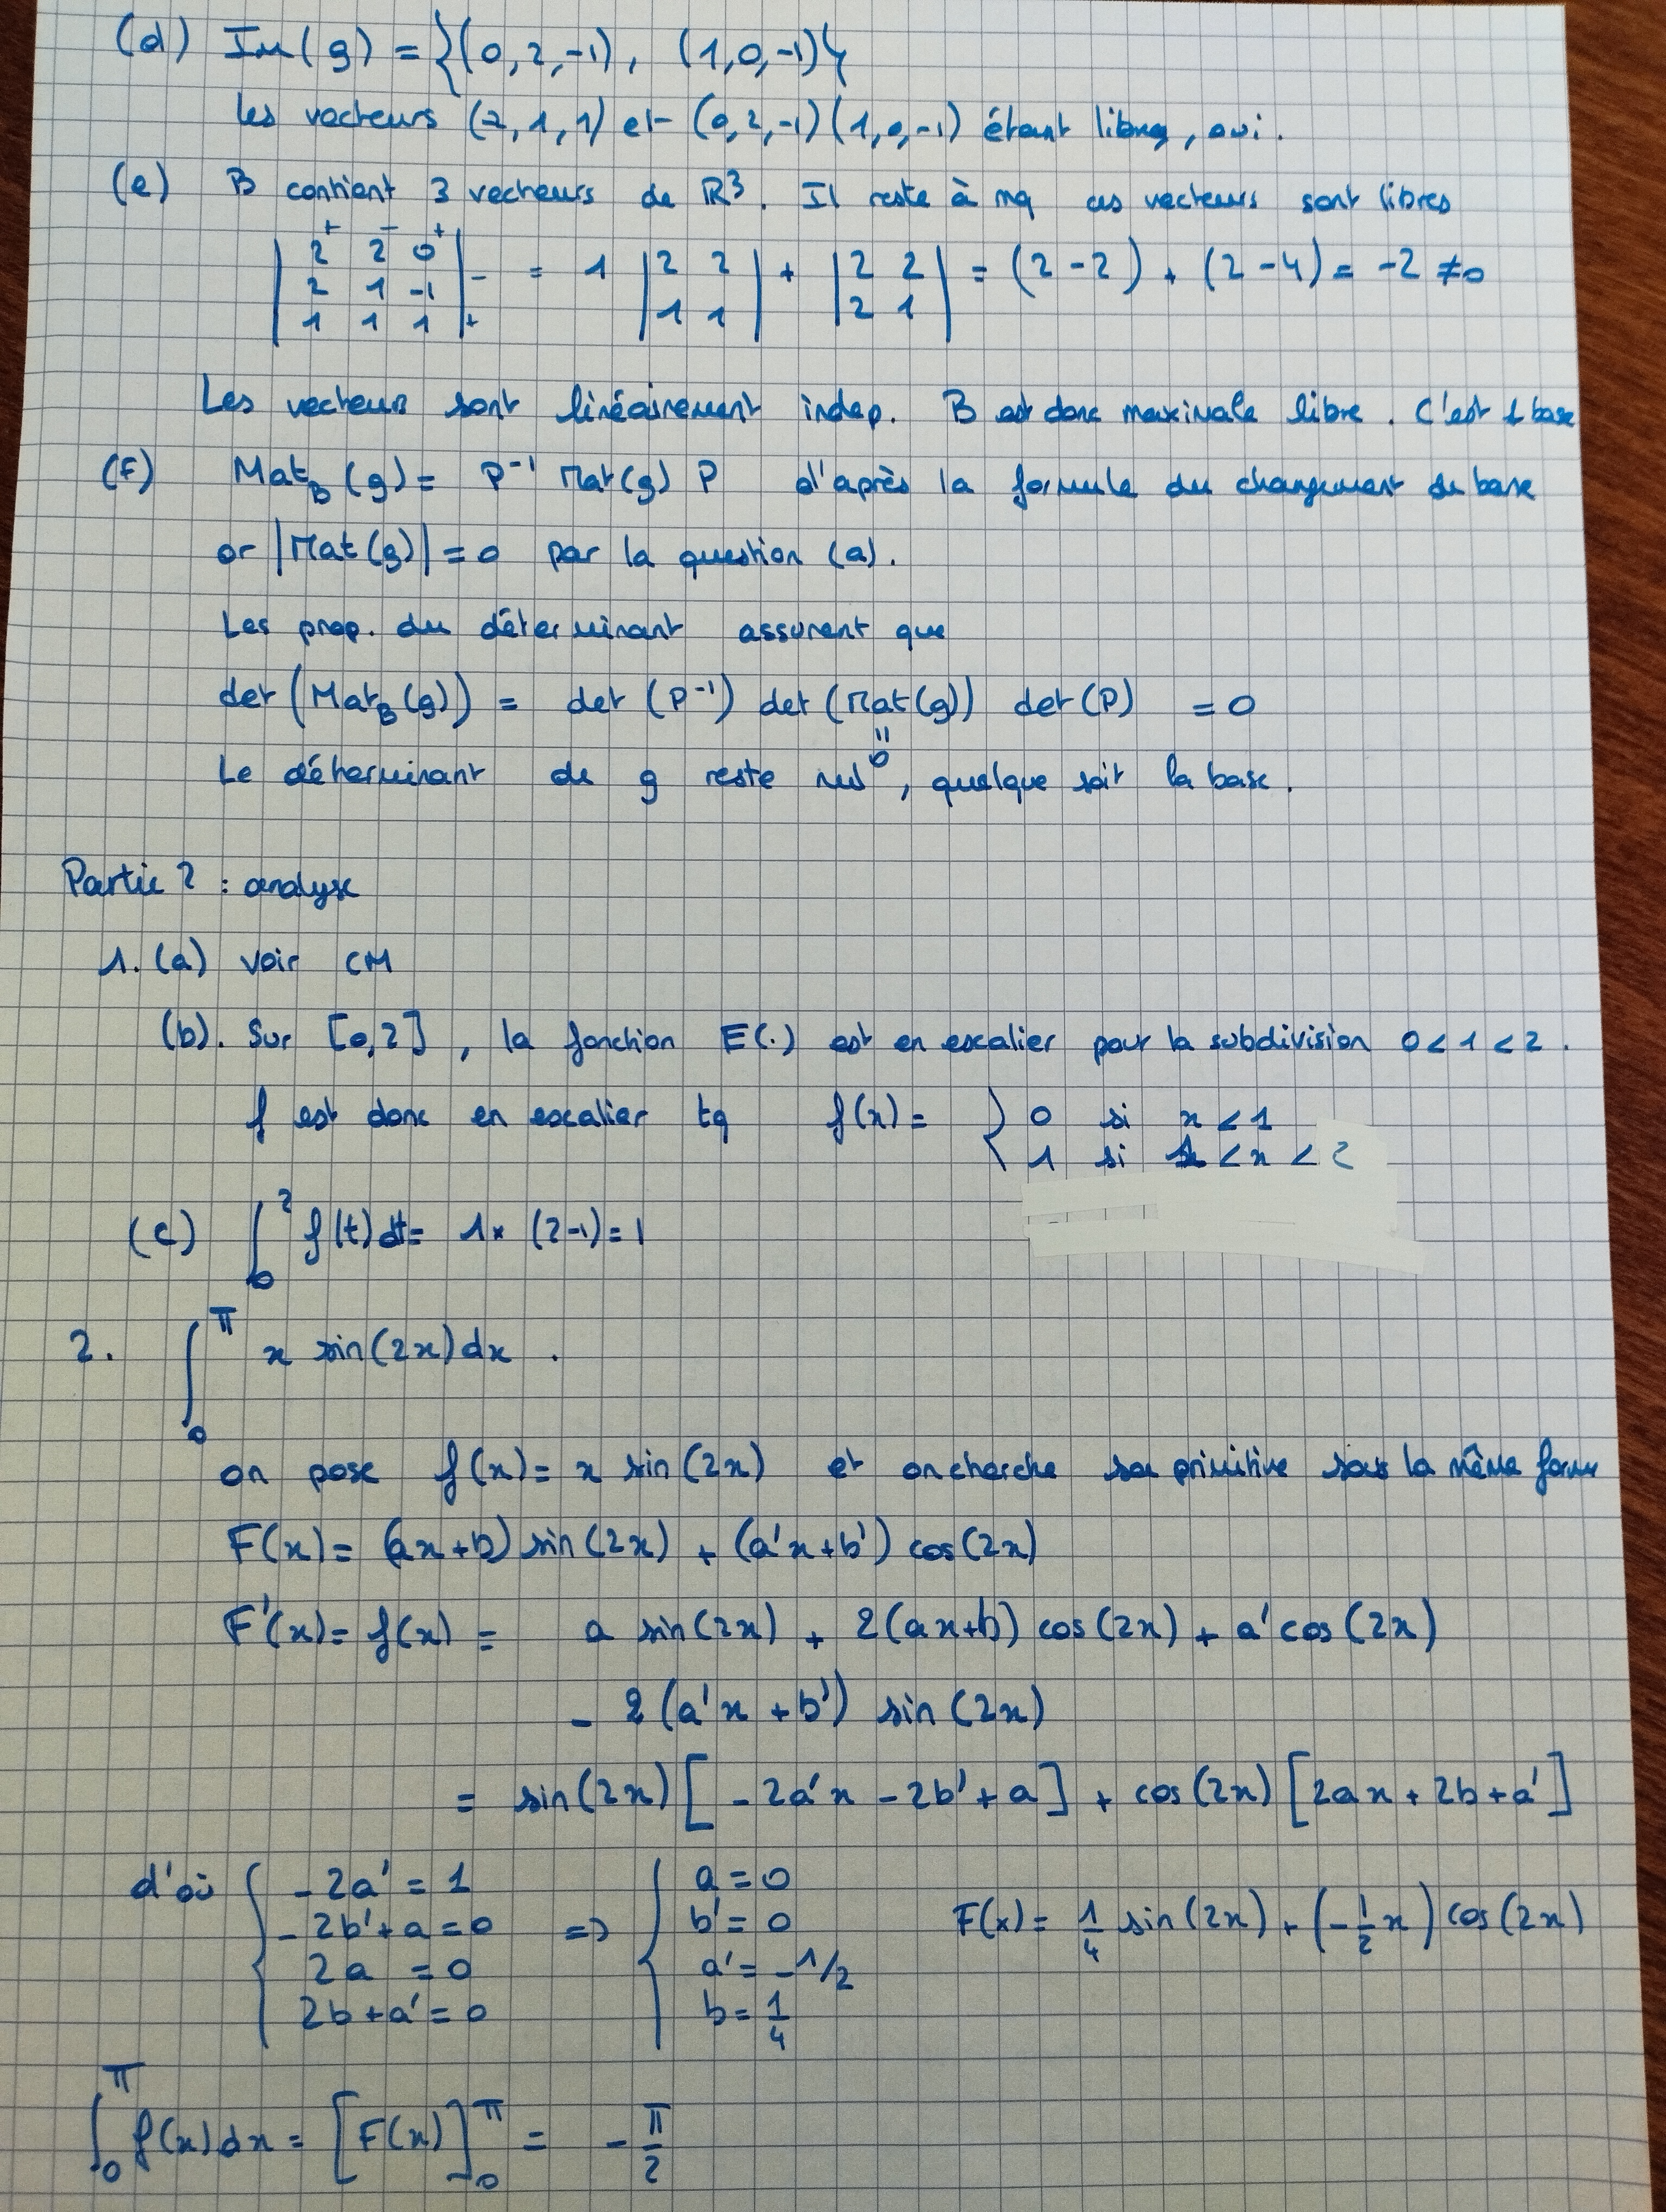 (d) Im(g) = {(0,2,-1), (1,0,-1)}
les vecteurs (2,1,1) et (0,2,-1) (1,0,-1) étant libres, oui.
(e) B contient 3 vecteurs de ℝ³. Il reste à mq ces vecteurs sont libres
|2⁺ 2⁻ 0⁺|
|2 1 -1| - = 1 |2 2| + |2 2| = (2-2) + (2-4) = -2 ≠0
|1 1 1| + |1 1| |2 1|
Les vecteurs sont linéairement indep. B est donc maximale libre. C'est 1 base
(f) Mat_B(g) = P⁻¹ Mat(g) P d'après la formule du changement de base
or |Mat(g)| = 0 par la question (a).
Les prop. du déterminant assurent que
det(Mat_B(g)) = det(P⁻¹) det(Mat(g)) det(P) = 0
"
0
Le déterminant de g reste nul, quelque soit la base.
Partie 2 : analyse
1. (a) voir CM
(b). Sur [0,2], la fonction E(.) est en escalier pour la subdivision 0<1<2.
f est donc en escalier tq f(x) = { 0 si x < 1
1 si 1 < x < 2
(c) ∫₀² f(t)dt = 1× (2-1) = 1
2. ∫₀^π x sin(2x)dx .
on pose f(x) = x sin(2x) et on cherche sa primitive sous la même forme
F(x) = (ax+b) sin(2x) + (a'x+b') cos(2x)
F'(x) = f(x) = a sin(2x) + 2(ax+b) cos(2x) + a'cos(2x)
- 2(a'x + b') sin(2x)
= sin(2x) [-2a'x - 2b' + a] + cos(2x) [2ax + 2b + a']
d'où { -2a' = 1 a = 0
-2b'+a = 0 => { b' = 0 F(x) = 1/4 sin(2x) + (-1/2 x) cos(2x)
2a = 0 a' = -1/2
2b+a' = 0 b = 1/4
∫₀^π f(x)dx = [F(x)]₀^π = - π/2